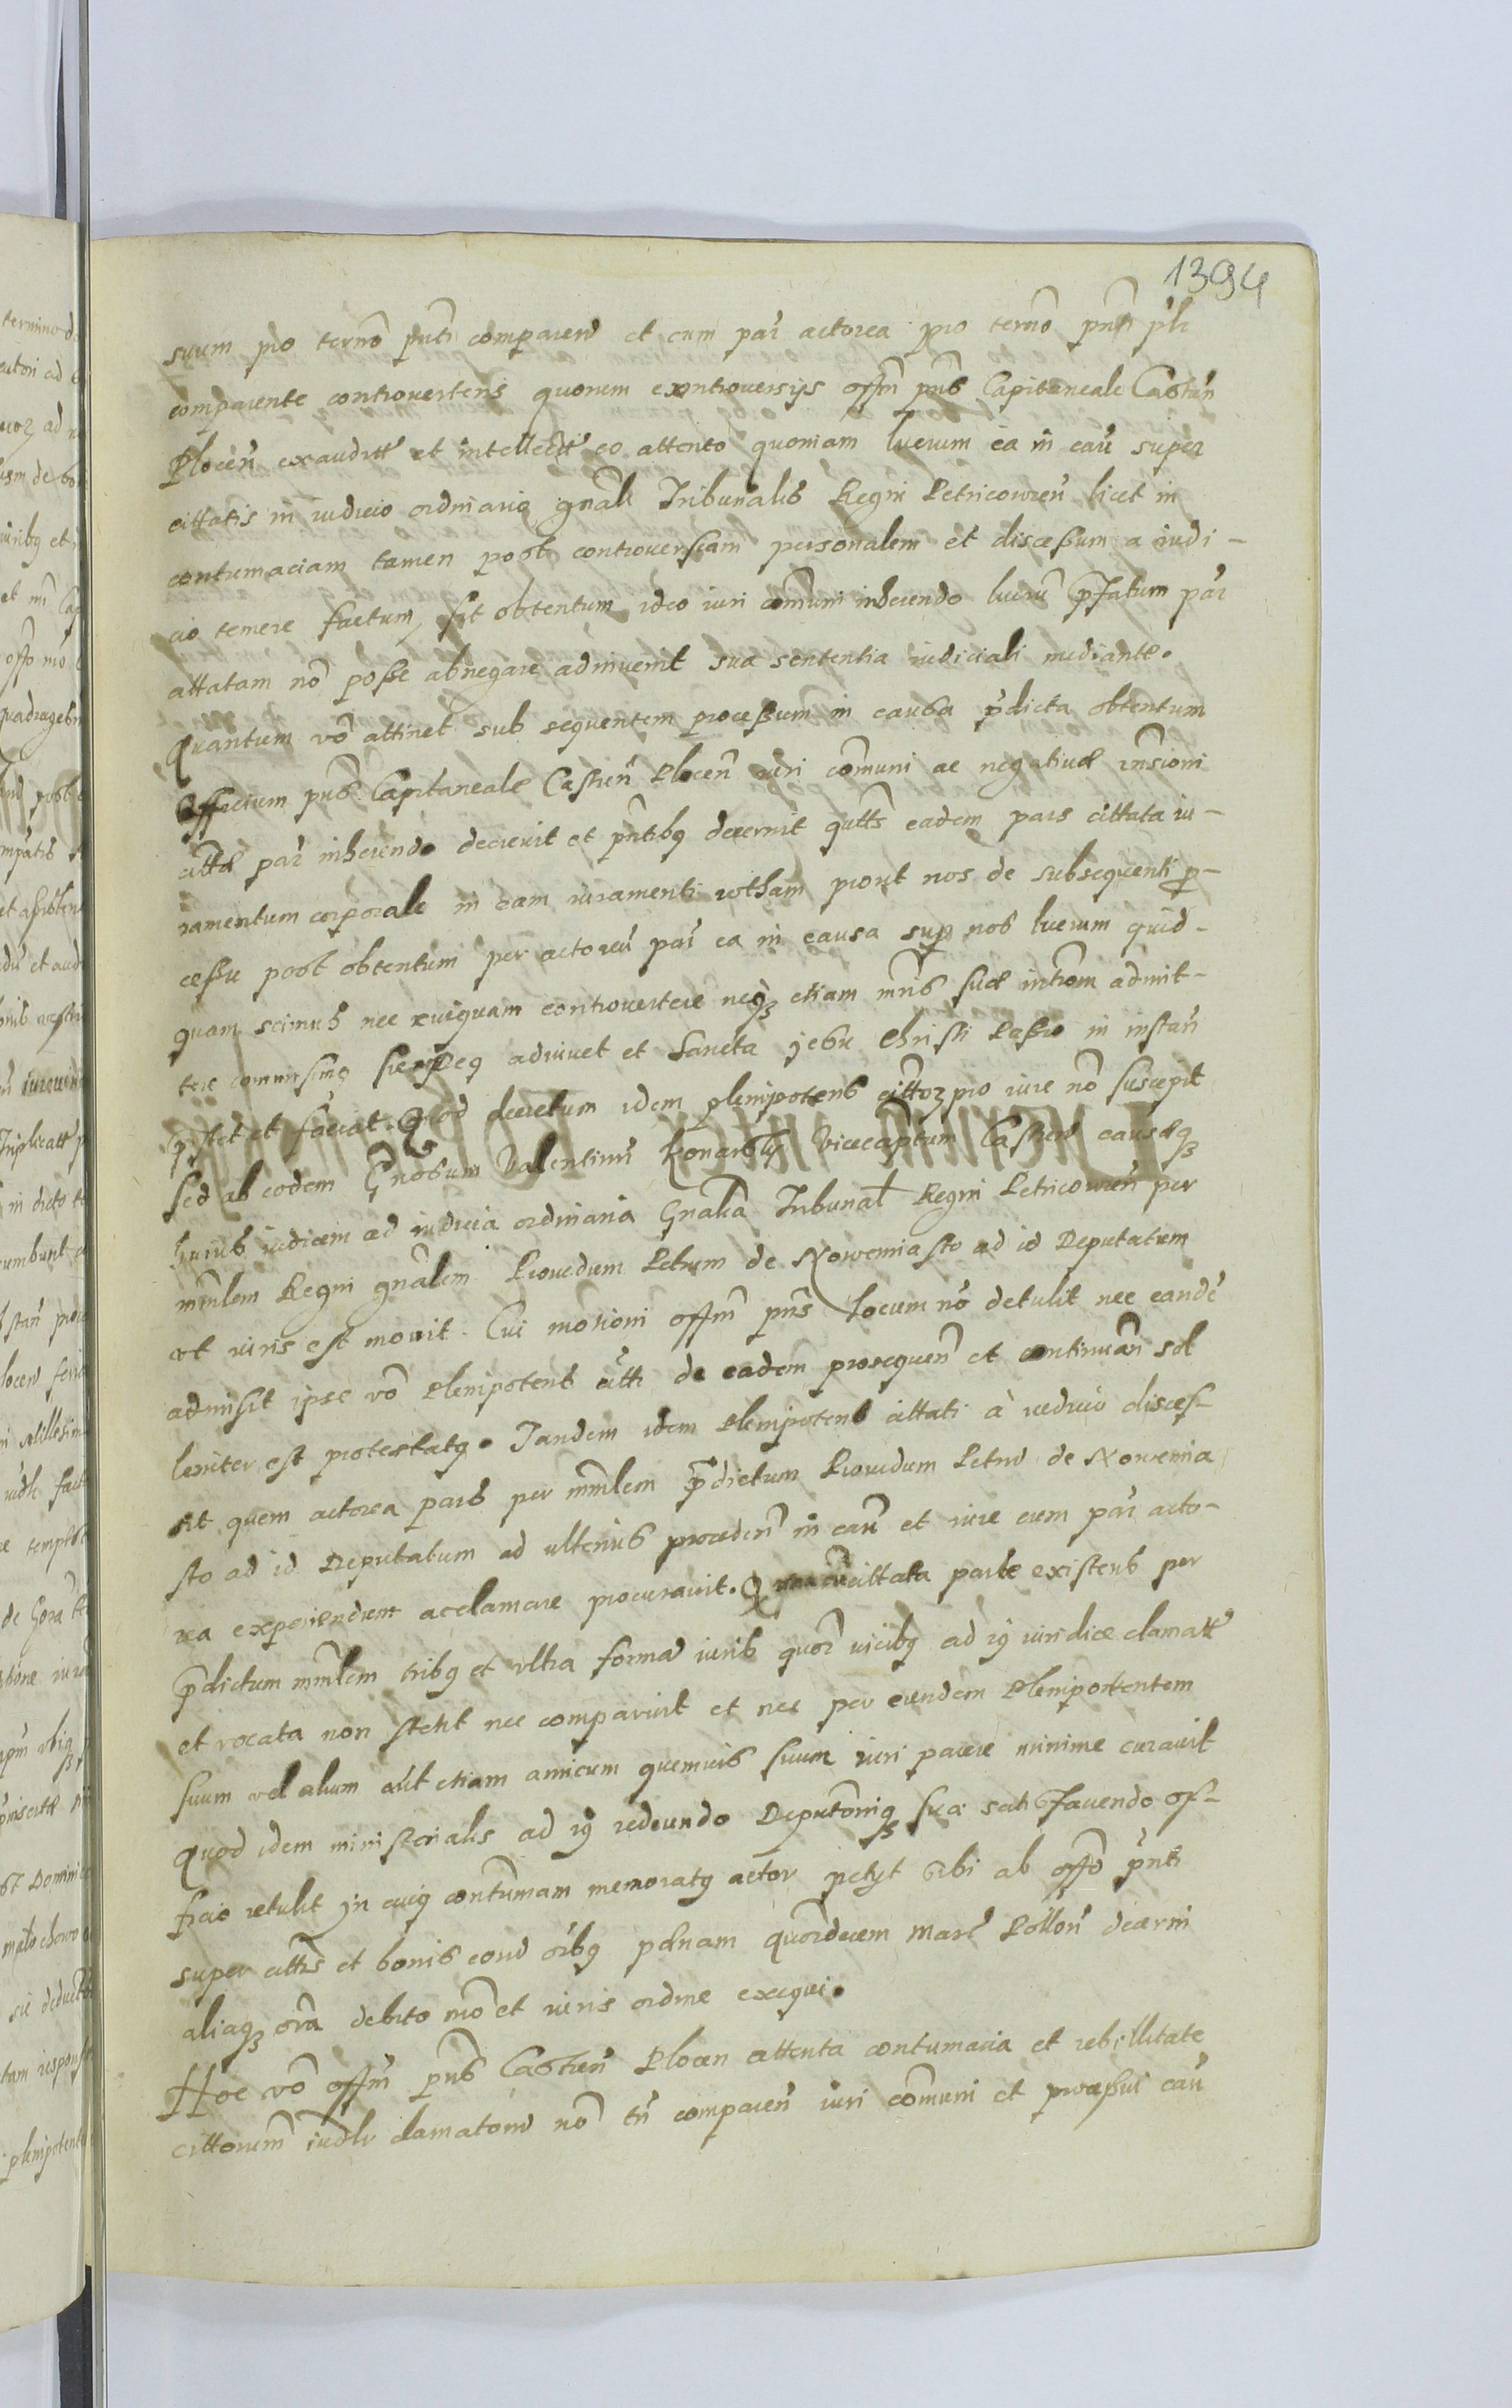 1394
suum pro termō pn̄ti comparen̄ et cum par̄ actorea pro termō pn̄ti pl̄r
comparente controvertens quorum controversijs off̄m pn̄s Capitaneale Castren̄
Plocen̄ exauditt̄ et intellectt̄ eo attento quoniam lucrum ea in cau̅ super
cittatis in iudicio ordinario gn̄ali Tribunalis Regni Petricowien̄ licet in
contumaciam tamen post controversiam personalem et discessum a iudi-
cio temere factum sit obtentum ideo iuri com̄uni inherendo lucrū p̄fatum par̄
cittatam nō posse abnegare adinvenit sua sententia iudiciali mediante.
Quantum vō attinet sub sequentem processum in causa p̄dicta obtentum
Officium pn̄s Capitaneale Castren̄ Plocen̄ iuri com̄uni ac negativæ
citt̄æ par̄ inherendo decrevit et pn̄tibq decernit qutt̄s eadem pars cittata iu-
ramentum corporale in eam iuramenti rotham prout nos de subsequenti p̄-
cessu post obtentum per actoreā par̄ ea in causa sup nos lucrum quid-
quam scimus nec cuiquam controvertere neqꝫ etiam mn̄s suæ introm̄ admit-
tere commisimq sicqꝫ Deq adiuvet et Sancta Jesu Christi Passio in instan̄
p̄stet et faciat. Quod decretum idem plenipotens citt̄oꝫ pro iure nō suscepit
sed ab eodem Gn̄osum Valentinū Konarsky Vicecaptum Castren̄ causæqꝫ
huius iudicem ad iudicia ordinaria Gn̄alia Tribunal̄ Regni Petricowien̄ per
mn̄lem Regni gn̄alem Providum Petrum de Nowemiasto ad id Deputatum
ut iuris est movit. Cui motioni off̄m pn̄s locum nō detulit nec eandē
admisit ipse vō Plenipotens citt̄i de eadem prosequen̄ et continuan̄ sol
leniter est protestatq. Tandem idem Plenipotens cittati à iudicio disces-
sit quem actorea pars per mn̄lem p̄dictum Providum Petrū de Nowemia
sto ad id Deputatum ad ulterius proceden̄ in cau̅ et iure cum par̄ acto-
rea experiendum acclamare procuravit. cittata parte existens per
p̄dictum mn̄lem tribq et ultra formā iuris quor̄ vicibq ad iq iuridice clamatt̄
et vocata non stetit nec comparuit et nec per eundem Plenipotentem
suum vel alium aut etiam amicum quemvis suum iuri parere minime curavit
Quod idem ministerialis ad iq redeundo Deputōniqꝫ suæ satisfaciendo of-
ficio retulit in cuiq contumam memoratq actor petijt sibi ab off̄o pn̄ti
super citt̄is et bonis eorū ōibq pænam quordecem Marc̄ Pollon̄ decerni
aliaqꝫ om̄a debito mō et iuris ordine exequi.
Hoc vō off̄m pn̄s Castren̄ Plocen attenta contumacia et rebellitate
cittorum iudlr clamatorū nō tn̄ comparen̄ iuri com̄uni et processui cau̅